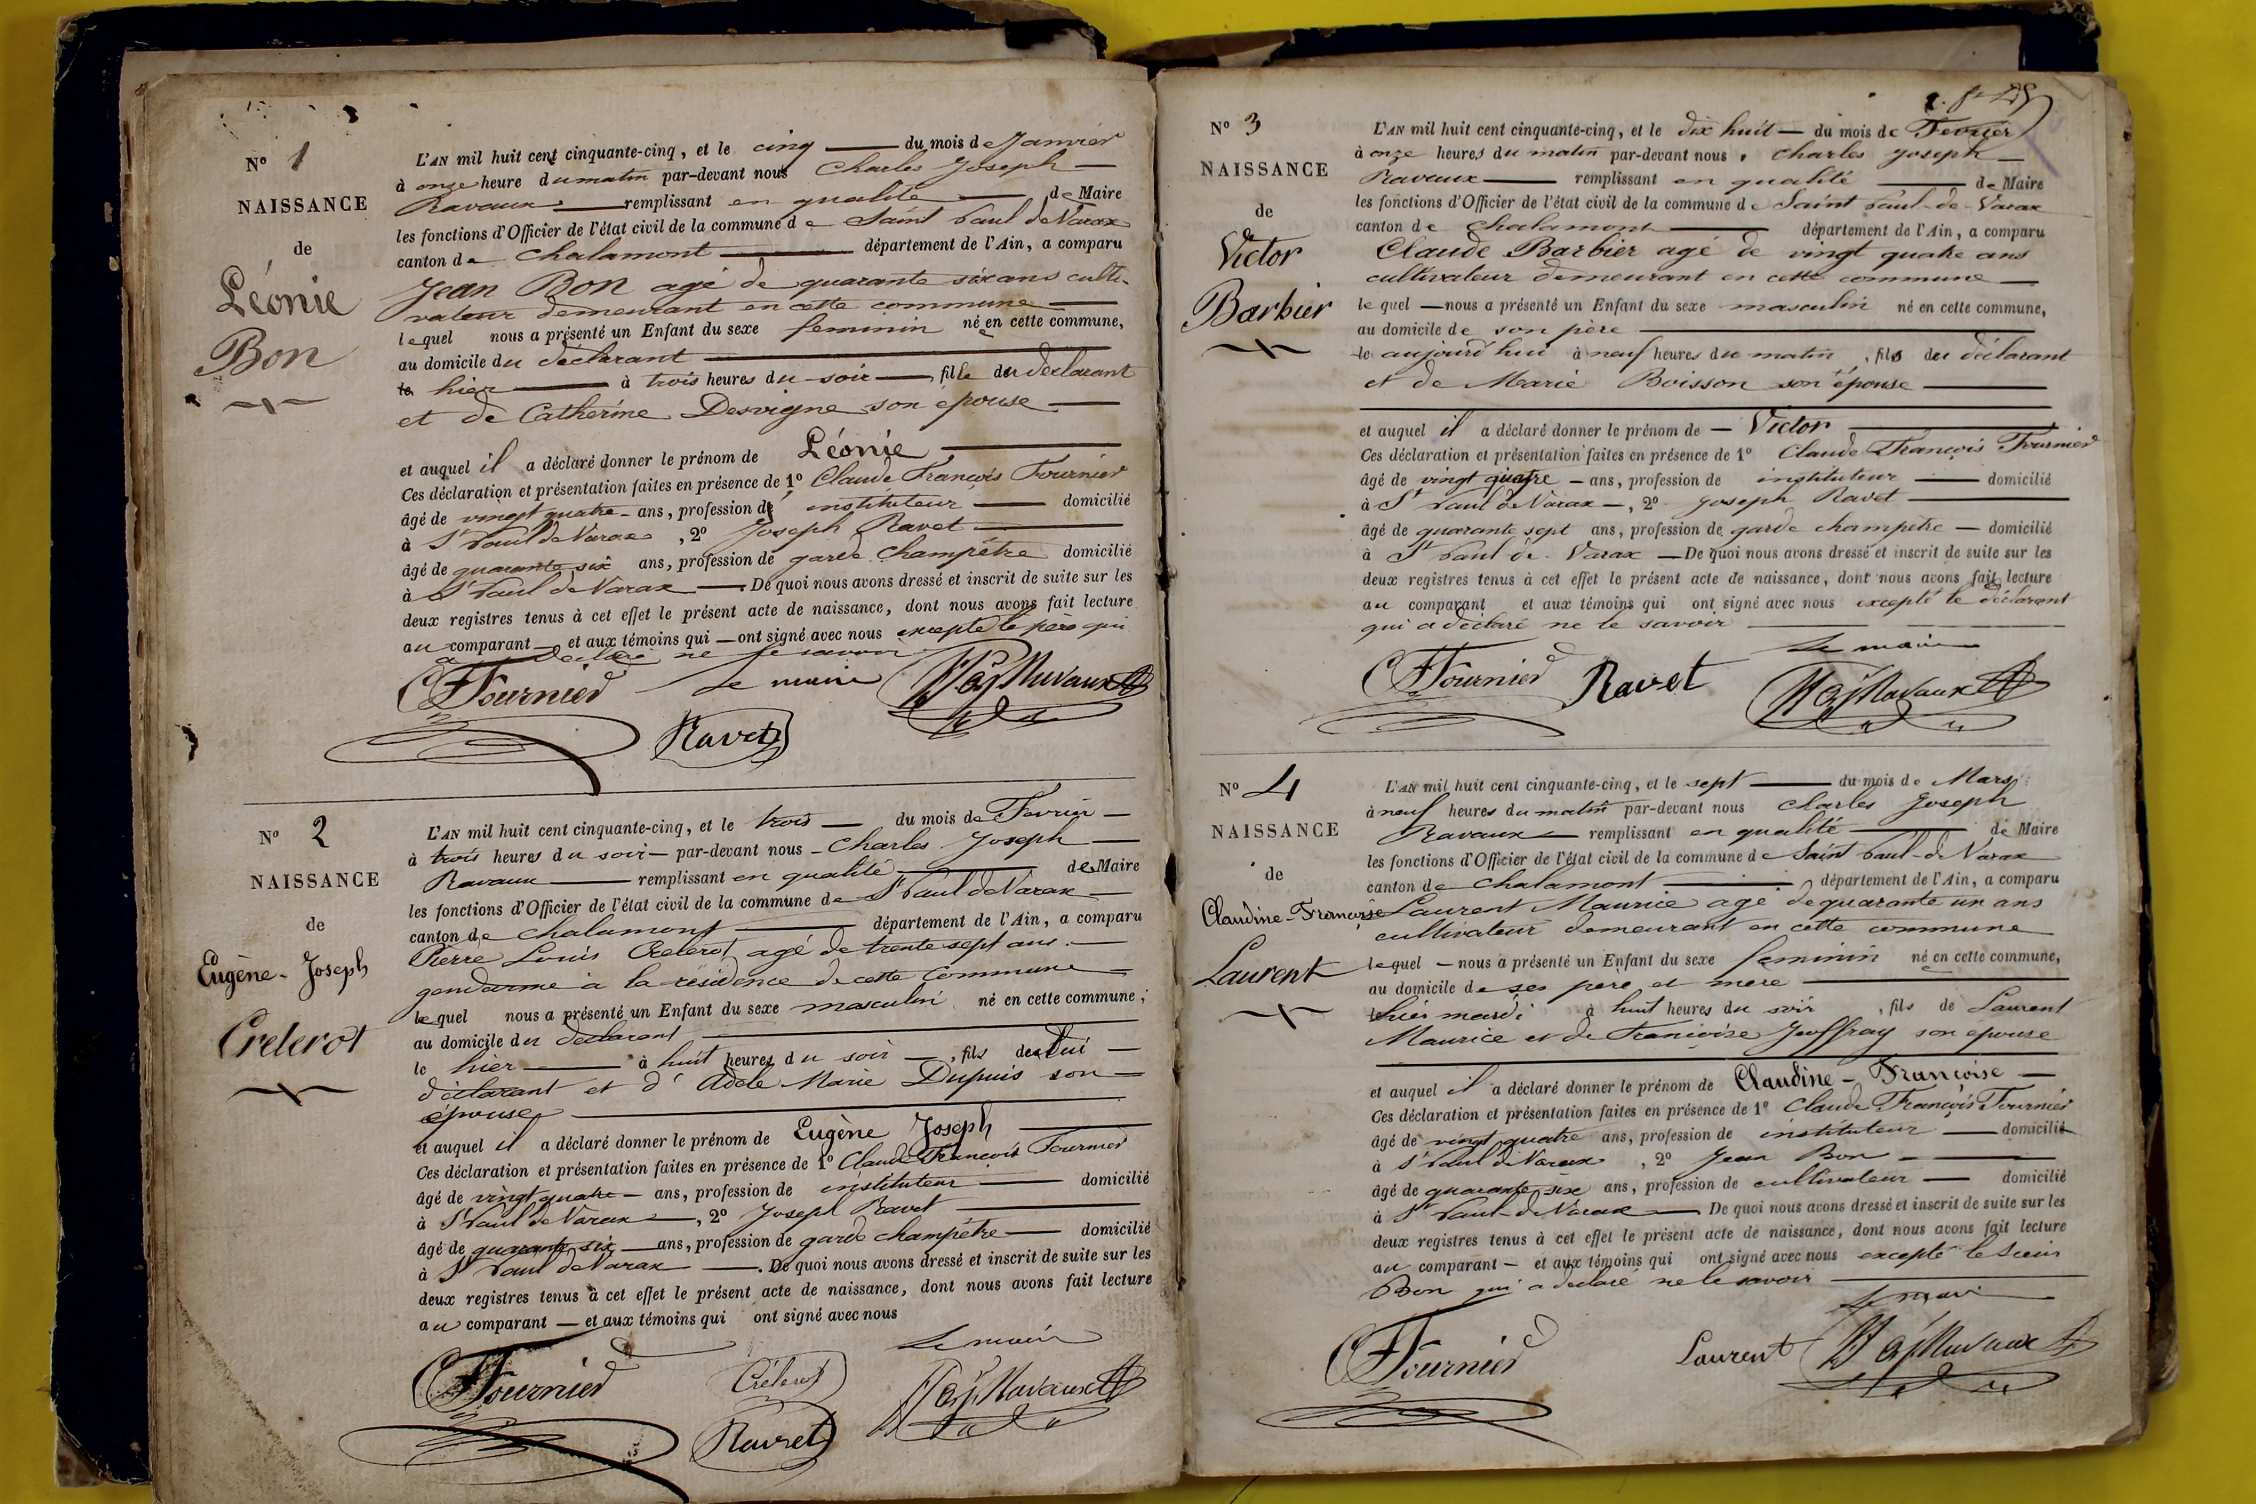 N° 1
NAISSANCE
de
Léonie
Bon
L'AN mil huit cent cinquante-cinq, et le cinq du mois de Janvier
à onze heure du matin par-devant nous Charles Joseph
Ravaux remplissant en qualité de Maire
les fonctions d'Officier de l'état civil de la commune de Saint Paul de Varax
canton de Chalamont département de l'Ain, a comparu
Jean Bon agé de quarante six ans culti-
vateur demeurant en cette commune
lequel nous a présenté un Enfant du sexe feminin né en cette commune,
au domicile du déclarant
le hier à trois heures du soir, fille du déclarant
et de Catherine Desvigne son épouse
et auquel il a déclaré donner le prénom de Léonie
Ces déclaration et présentation faites en présence de 1° Claude François Fournier
âgé de vingt quatre ans, profession de instituteur domicilié
à St Paul de Varax, 2° Joseph Ravet
âgé de quarante six ans, profession de garde champêtre domicilié
à St Paul de Varax De quoi nous avons dressé et inscrit de suite sur les
deux registres tenus à cet effet le présent acte de naissance, dont nous avons fait lecture
au comparant et aux témoins qui ont signé avec nous excepté le père qui
a déclaré ne le savoir
Fournier Le maire Ravaux
Ravet
N° 2
NAISSANCE
de
Eugène-Joseph
Crelerot
L'AN mil huit cent cinquante-cinq, et le trois du mois de Fevrier
à trois heures du soir par-devant nous Charles Joseph
Ravaux remplissant en qualité de Maire
les fonctions d'Officier de l'état civil de la commune de St Paul de Varax
canton de Chalamont département de l'Ain, a comparu
Pierre Louis Crelerot agé de trente sept ans
gendarme à la résidence de cette commune
lequel nous a présenté un Enfant du sexe masculin né en cette commune,
au domicile du déclarant
le hier à huit heures du soir, fils de lui
déclarant et d'Adele Marie Dupuis son
épouse
et auquel il a déclaré donner le prénom de Eugène Joseph
Ces déclaration et présentation faites en présence de 1° Claude François Fournier
âgé de vingt quatre ans, profession de instituteur domicilié
à St Paul de Varax, 2° Joseph Ravet
âgé de quarante six ans, profession de garde champêtre domicilié
à St Paul de Varax. De quoi nous avons dressé et inscrit de suite sur les
deux registres tenus à cet effet le présent acte de naissance, dont nous avons fait lecture
au comparant et aux témoins qui ont signé avec nous
Le maire
Fournier Crélerot Ravaux
Ravet
N° 3
NAISSANCE
de
Victor
Barbier
L'AN mil huit cent cinquante-cinq, et le dix huit du mois de Fevrier
à onze heures du matin par-devant nous, Charles Joseph
Ravaux remplissant en qualité de Maire
les fonctions d'Officier de l'état civil de la commune de Saint Paul-de-Varax
canton de Chalamont département de l'Ain, a comparu
Claude Barbier agé de vingt quatre ans
cultivateur demeurant en cette commune
lequel nous a présenté un Enfant du sexe masculin né en cette commune,
au domicile de son père
le aujourd'hui à neuf heures du matin, fils du déclarant
et de Marie Boisson son épouse
et auquel il a déclaré donner le prénom de Victor
Ces déclaration et présentation faites en présence de 1° Claude François Fournier
âgé de vingt quatre ans, profession de instituteur domicilié
à St Paul de Varax, 2° Joseph Ravet
âgé de quarante sept ans, profession de garde champêtre domicilié
à St Paul de Varax De quoi nous avons dressé et inscrit de suite sur les
deux registres tenus à cet effet le présent acte de naissance, dont nous avons fait lecture
au comparant et aux témoins qui ont signé avec nous excepté le déclarant
qui a déclaré ne le savoir
Le maire
Fournier Ravet Ravaux
N° 4
NAISSANCE
de
Claudine-Françoise
Laurent
L'AN mil huit cent cinquante-cinq, et le sept du mois de Mars
à neuf heures du matin par-devant nous Charles Joseph
Ravaux remplissant en qualité de Maire
les fonctions d'Officier de l'état civil de la commune de Saint Paul-de Varax
canton de Chalamont département de l'Ain, a comparu
Laurent Maurice agé de quarante un ans
cultivateur demeurant en cette commune
lequel nous a présenté un Enfant du sexe feminin né en cette commune,
au domicile de ses père et mère
le hier mardi à huit heures du soir, fils de Laurent
Maurice et de Françoise Jeoffray son épouse
et auquel il a déclaré donner le prénom de Claudine-Françoise
Ces déclaration et présentation faites en présence de 1° Claude François Fournier
âgé de vingt quatre ans, profession de instituteur domicilié
à St Paul de Varax, 2° Jean Bon
âgé de quarante six ans, profession de cultivateur domicilié
à St Paul-de Varax De quoi nous avons dressé et inscrit de suite sur les
deux registres tenus à cet effet le présent acte de naissance, dont nous avons fait lecture
au comparant et aux témoins qui ont signé avec nous excepté le Sieur
Bon qui a déclaré ne le savoir
Le maire
Fournier Laurent Ravaux